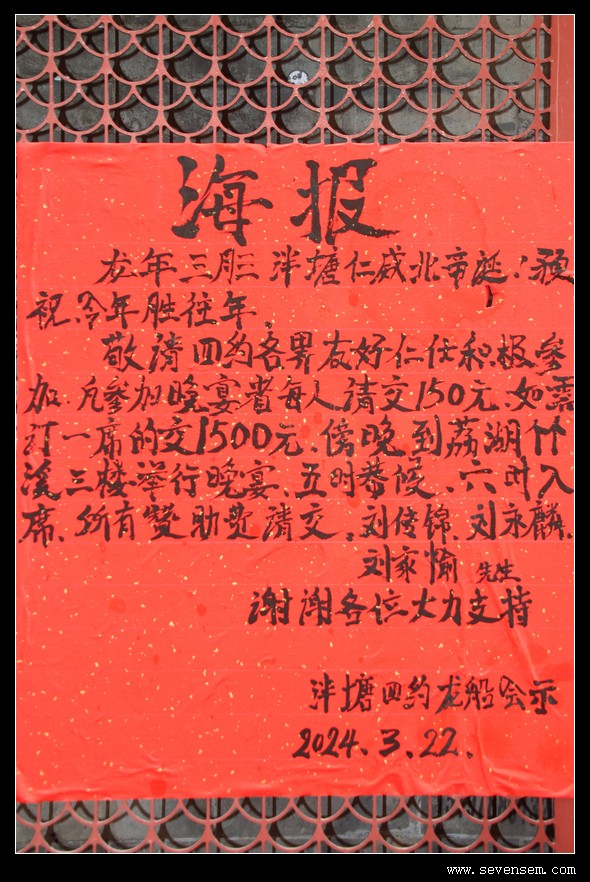 海报
龙年三月三泮塘仁威北帝诞,预
祝.今年胜往年.
敬请四约各界友好仁仕积极参
加.凡参加晚宴者每人请交150元.如需
订一席的交1500元.傍晚到荔湖竹
溪三楼举行晚宴、五时恭候、六时入
席、所有赞助费请交。刘传锦.刘永麟.
刘家愉 先生
谢谢各位大力支持
泮塘四约龙船会示
2024.3.22.
www.sevensem.com